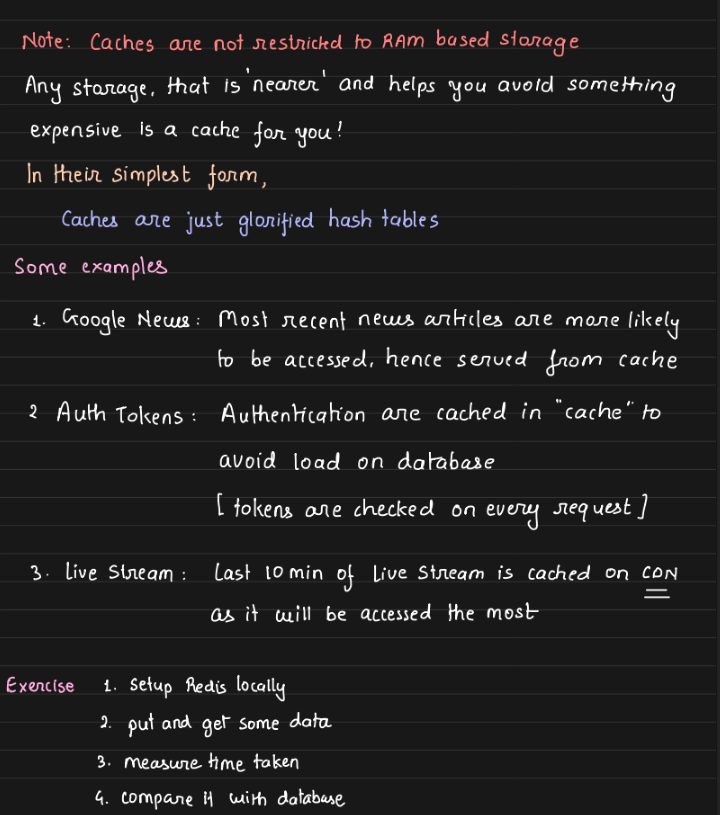 Note: Caches are not restricted to RAM based storage
Any storage, that is 'nearer' and helps you avoid something
expensive is a cache for you!
In their simplest form,
Caches are just glorified hash tables
Some examples
1. Google News: Most recent news articles are more likely
to be accessed, hence served from cache
2 Auth Tokens: Authentication are cached in "cache" to
avoid load on database
[ tokens are checked on every request ]
3. Live Stream: Last 10 min of Live Stream is cached on CDN
as it will be accessed the most
Exercise 1. Setup Redis locally
2. put and get some data
3. measure time taken
4. compare it with database